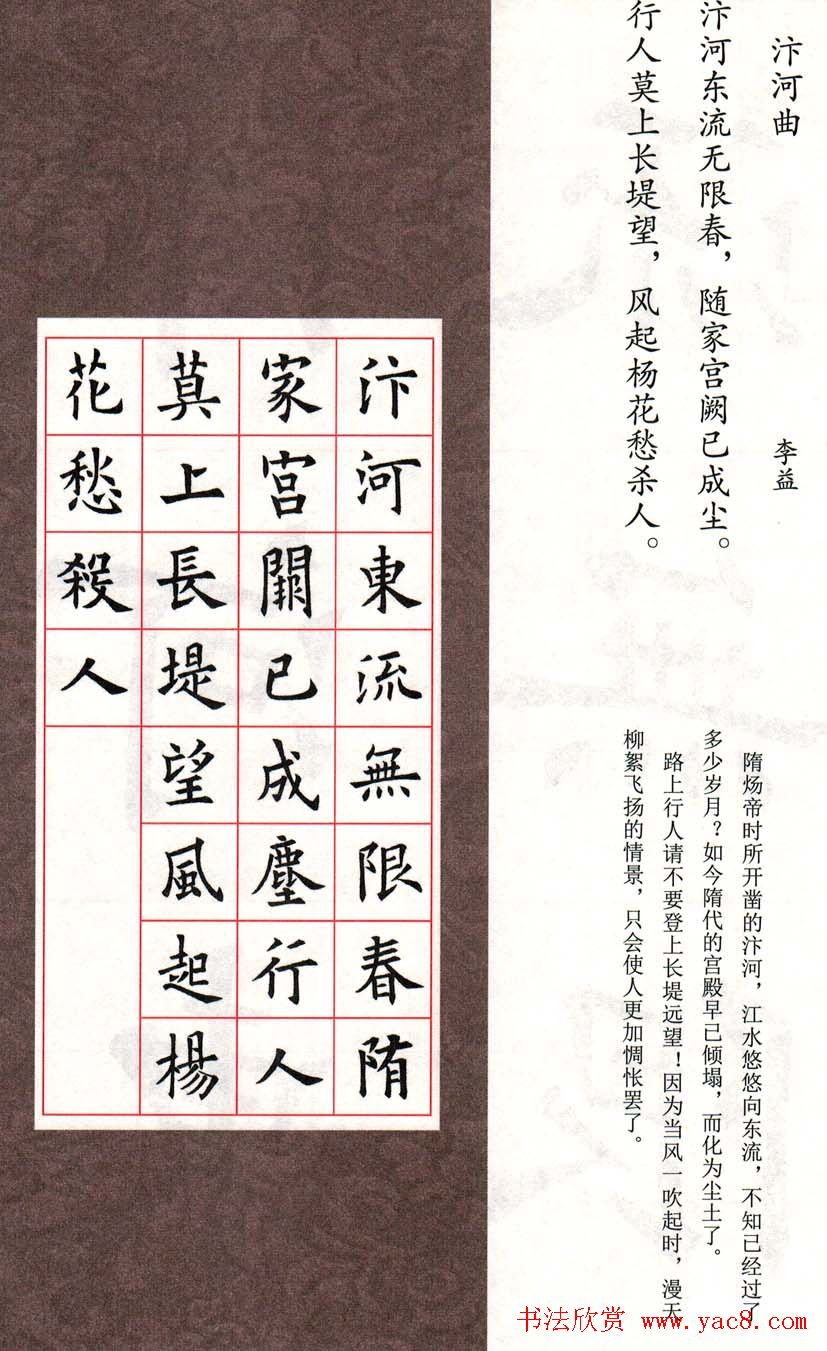 汴河曲
李益
汴河东流无限春，随家宫阙已成尘。
行人莫上长堤望，风起杨花愁杀人。
隋炀帝时所开凿的汴河，江水悠悠向东流，不知已经过了
多少岁月？如今隋代的宫殿早已倾塌，而化为尘土了。
路上行人请不要登上长堤远望！因为当风一吹起时，漫天
柳絮飞扬的情景，只会使人更加惆怅罢了。
汴河東流無限春隋
家宫闕已成塵行人
莫上長堤望風起楊
花愁殺人
书法欣赏 www.yac8.com